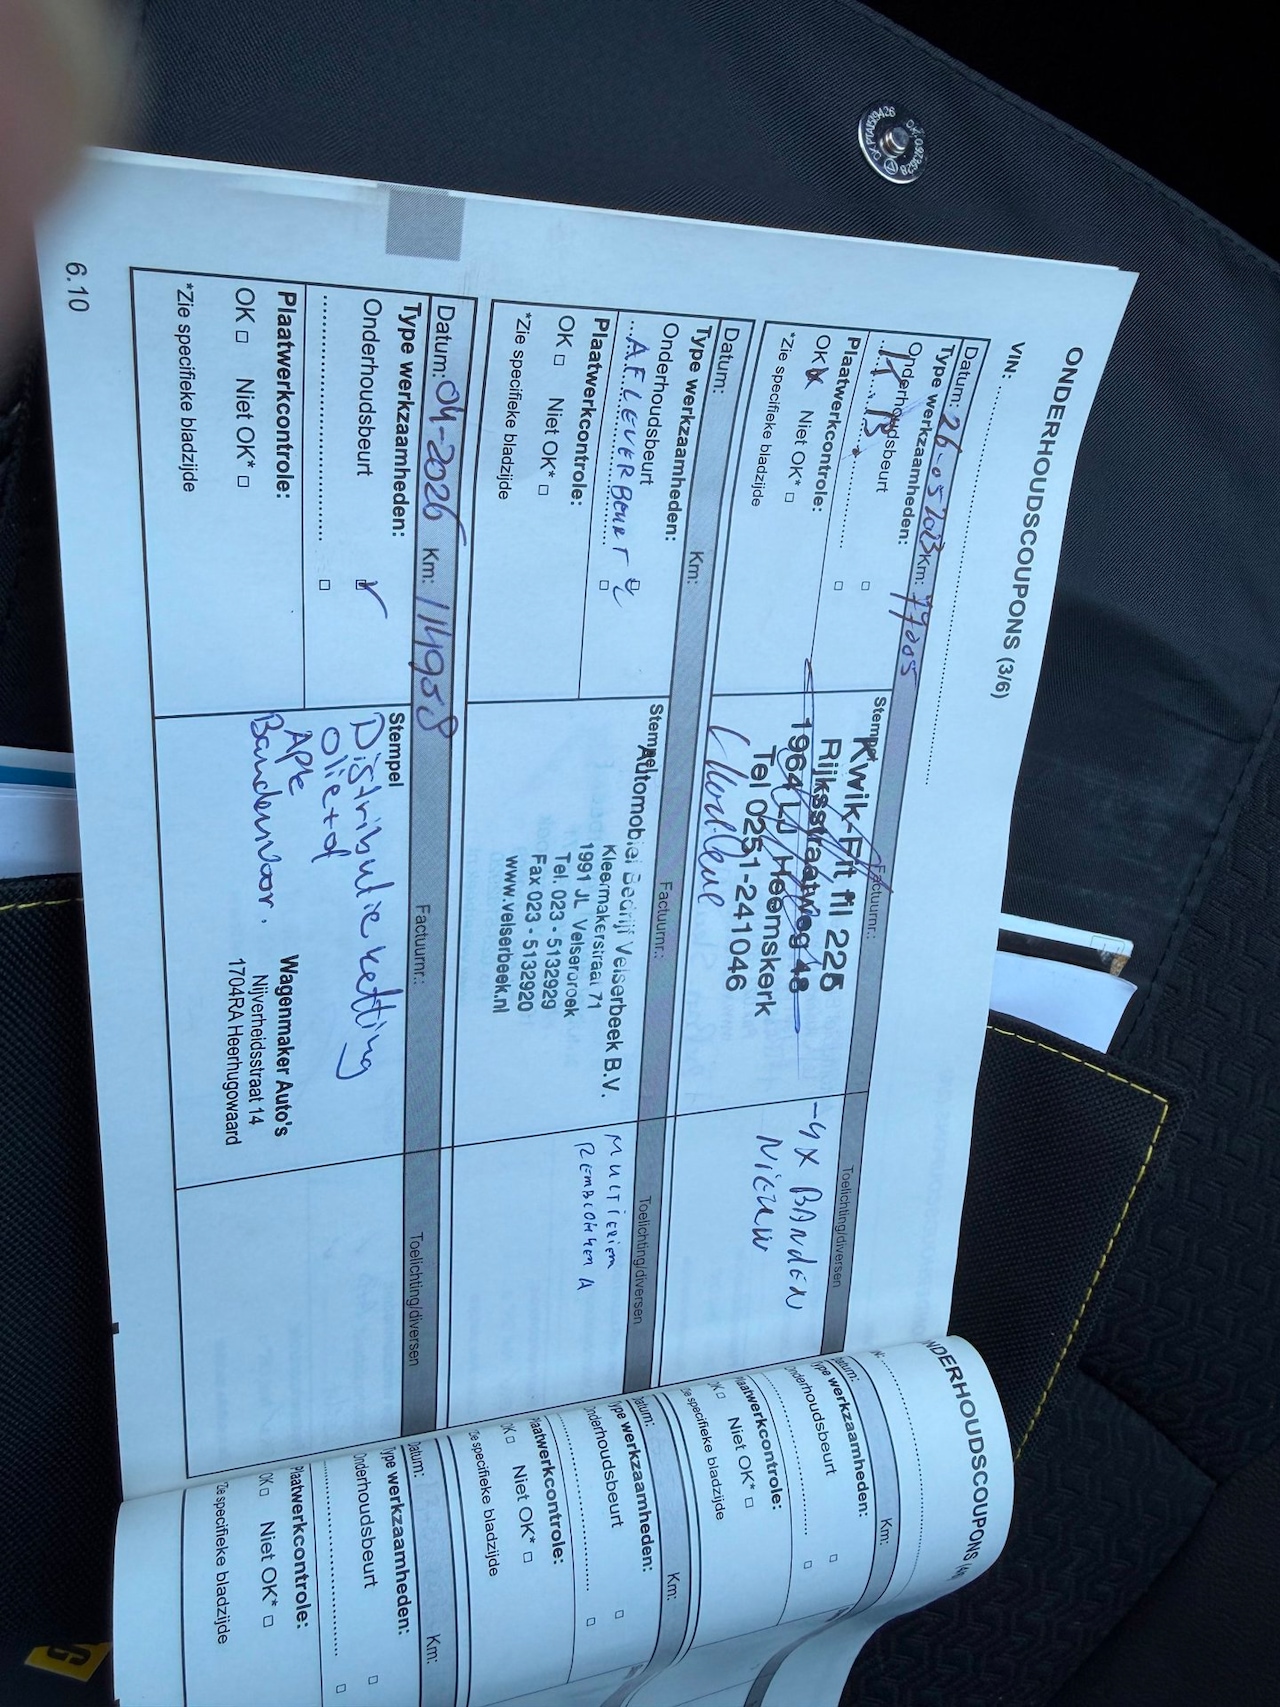 ONDERHOUDSCOUPONS (3/6)
VIN:
Datum: 26-05 2023 Km: 79005
Type werkzaamheden:
Onderhoudsbeurt
B
Plaatwerkcontrole:
OK Niet OK*
*Zie specifieke bladzijde
Stempel
Factuurnr.:
Kwik-Fit fil 225
Rijksstraatweg 48
1964 LJ Heemskerk
Tel 0251-241046
Toelichting/diversen
-4X BANDEN
NIEUW
Datum: Km:
Type werkzaamheden:
Onderhoudsbeurt
AFLEVERBEURT
Plaatwerkcontrole:
OK Niet OK*
*Zie specifieke bladzijde
Stempel
Factuurnr.:
Automobiel Bedrijf Velserbeek B.V.
Kleermakerstraat 71
1991 JL Velserbroek
Tel. 023 - 5132929
Fax 023 - 5132920
www.velserbeek.nl
Toelichting/diversen
MULTIRIEM
REMBLOKKEN A
Datum: 04-2026 Km: 114958
Type werkzaamheden:
Onderhoudsbeurt
Plaatwerkcontrole:
OK Niet OK*
*Zie specifieke bladzijde
Stempel
Factuurnr.:
Distributieketting
Olie + of
APK
Banden voor.
Wagenmaker Auto's
Nijverheidsstraat 14
1704RA Heerhugowaard
Toelichting/diversen
6.10
NDERHOUDSCOUPONS
Datum: Km:
Type werkzaamheden:
Onderhoudsbeurt
Plaatwerkcontrole:
OK Niet OK*
Zie specifieke bladzijde
Datum: Km:
Type werkzaamheden:
Onderhoudsbeurt
Plaatwerkcontrole:
OK Niet OK*
Zie specifieke bladzijde
Datum: Km:
Type werkzaamheden:
Onderhoudsbeurt
Plaatwerkcontrole:
OK Niet OK*
Zie specifieke bladzijde